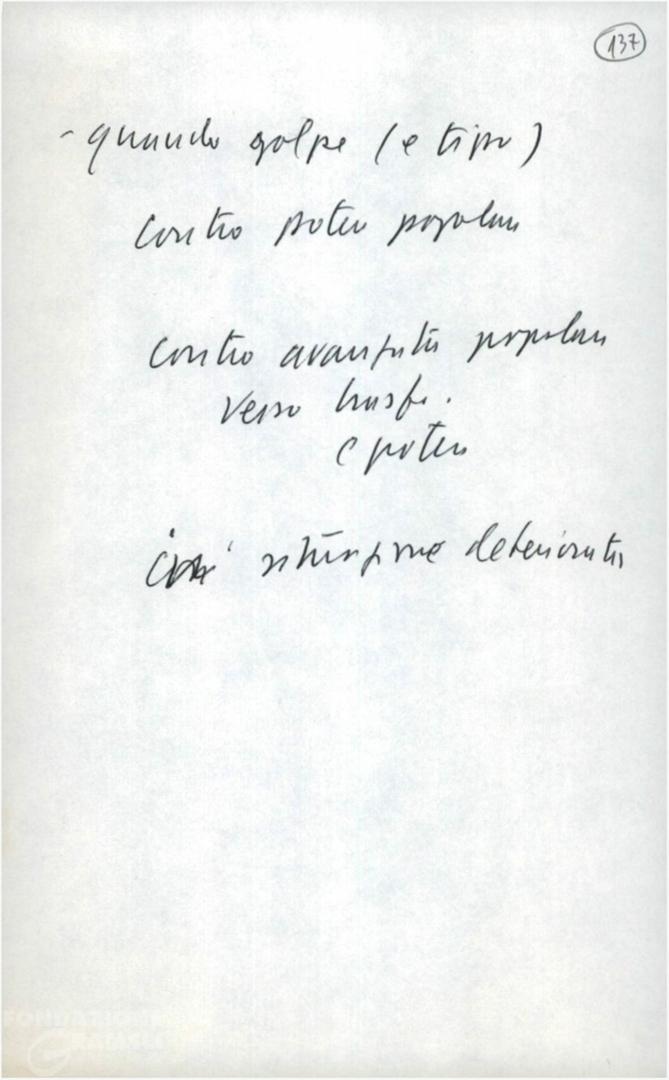 137
- quando golpe (e tipo)
contro potere popolare
contro avanzata popolare
verso trasf.
e potere
situazione deteriorata
FONDAZIONE
GRAMSCI